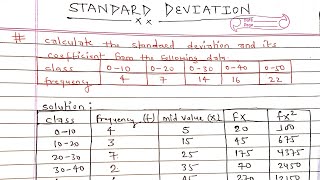 STANDARD DEVIATION
calculate the standard deviation and its
coefficient from the following data
class 0-10 0-20 0-30 0-40 0-50
frequency 4 7 14 16 22
solution:
class frequency (f) mid value (x) fx fx²
0-10 4 5 20 100
10-20 3 15 45 675
20-30 7 25 175 4375
30-40 2 35 70 2450
45 270 12150